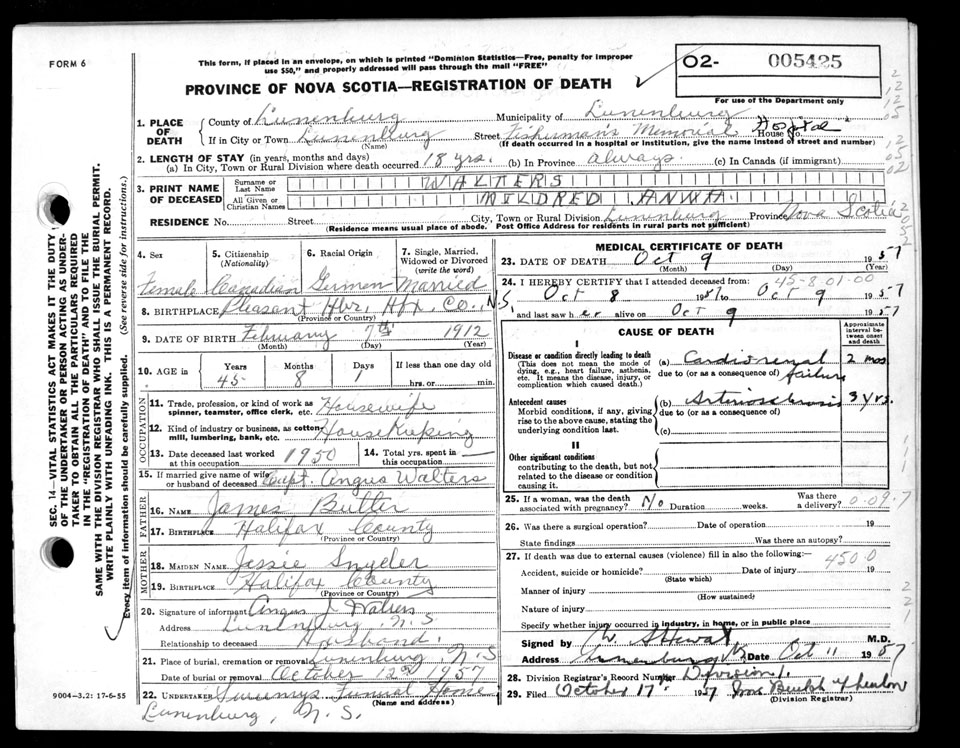 FORM 6
This form, if placed in an envelope, on which is printed "Dominion Statistics—Free, penalty for improper
use $50," and properly addressed will pass through the mail "FREE"
PROVINCE OF NOVA SCOTIA—REGISTRATION OF DEATH
02- 005425
For use of the Department only
1. PLACE OF DEATH
County of Lunenburg Municipality of Lunenburg
If in City or Town Lunenburg Street Fisherman's Memorial House No. Hospital
(Name) (If death occurred in a hospital or institution, give the name instead of street and number)
2. LENGTH OF STAY (in years, months and days)
(a) In City, Town or Rural Division where death occurred 18 yrs. (b) In Province always. (c) In Canada (if immigrant)
3. PRINT NAME OF DECEASED
Surname or Last Name WALTERS
All Given or Christian Names MILDRED ANNA
RESIDENCE No. Street City, Town or Rural Division Lunenburg Province Nova Scotia
(Residence means usual place of abode. Post Office Address for residents in rural parts not sufficient)
4. Sex Female
5. Citizenship (Nationality) Canadian
6. Racial Origin German
7. Single, Married, Widowed or Divorced (write the word) Married
8. BIRTHPLACE Pleasant Hbr. Hfx. Co., N.S.
(Province or County)
9. DATE OF BIRTH February 7th 1912
(Month) (Day) (Year)
10. AGE in Years 45 Months 8 Days 1 If less than one day old hrs. or min.
OCCUPATION
11. Trade, profession, or kind of work as spinner, teamster, office clerk, etc. Housewife
12. Kind of industry or business, as cotton-mill, lumbering, bank, etc. House Keeping
13. Date deceased last worked at this occupation 1950
14. Total yrs. spent in this occupation —
15. If married give name of wife or husband of deceased Capt. Angus Walters
FATHER
16. NAME James Butler
17. BIRTHPLACE Halifax County
(Province or County)
MOTHER
18. MAIDEN NAME Jessie Snyder
19. BIRTHPLACE Halifax County
(Province or County)
20. Signature of informant Angus J Walters
Address Lunenburg, N.S
Relationship to deceased Husband.
21. Place of burial, cremation or removal Lunenburg N.S
Date of burial or removal October 12 1957
22. UNDERTAKER Funeral Home
(Name and address)
Lunenburg, N.S.
MEDICAL CERTIFICATE OF DEATH
23. DATE OF DEATH Oct 9 1957
(Month) (Day) (Year)
45-8 01-00
24. I HEREBY CERTIFY that I attended deceased from:
Oct 8 1957 to Oct 9 1957
and last saw her alive on Oct 9 1957
CAUSE OF DEATH
Approximate interval between onset and death
I
Disease or condition directly leading to death
(This does not mean the mode of dying, e.g., heart failure, asthenia, etc. It means the disease, injury, or complication which caused death.)
(a) Cardiorenal failure 2 mos
due to (or as a consequence of)
Antecedent causes
Morbid conditions, if any, giving rise to the above cause, stating the underlying condition last.
(b) Arteriosclerosis 3 yrs.
due to (or as a consequence of)
(c)
II
Other significant conditions
contributing to the death, but not related to the disease or condition causing it.
25. If a woman, was the death associated with pregnancy? No Duration weeks. Was there a delivery?
0.09.7
26. Was there a surgical operation? Date of operation 19
State findings Was there an autopsy?
27. If death was due to external causes (violence) fill in also the following:—
450.0
Accident, suicide or homicide? Date of injury 19
(State which)
Manner of injury
(How sustained)
Nature of injury
Specify whether injury occurred in industry, in home, or in public place
Signed by W. Stewart M.D.
Address Lunenburg NS Date Oct 11 1957
28. Division Registrar's Record Number Division 1.
29. Filed October 17 1957 Mrs Beulah
(Division Registrar)
SEC. 14—VITAL STATISTICS ACT MAKES IT THE DUTY
OF THE UNDERTAKER OR PERSON ACTING AS UNDER-
TAKER TO OBTAIN ALL THE PARTICULARS REQUIRED
IN THE "REGISTRATION OF DEATH" AND TO FILE THE
SAME WITH THE DIVISION REGISTRAR WHO SHALL ISSUE THE BURIAL PERMIT.
WRITE PLAINLY WITH UNFADING INK. THIS IS A PERMANENT RECORD.
Every item of information should be carefully supplied. (See reverse side for instructions.)
9004—3.2: 17-6-55